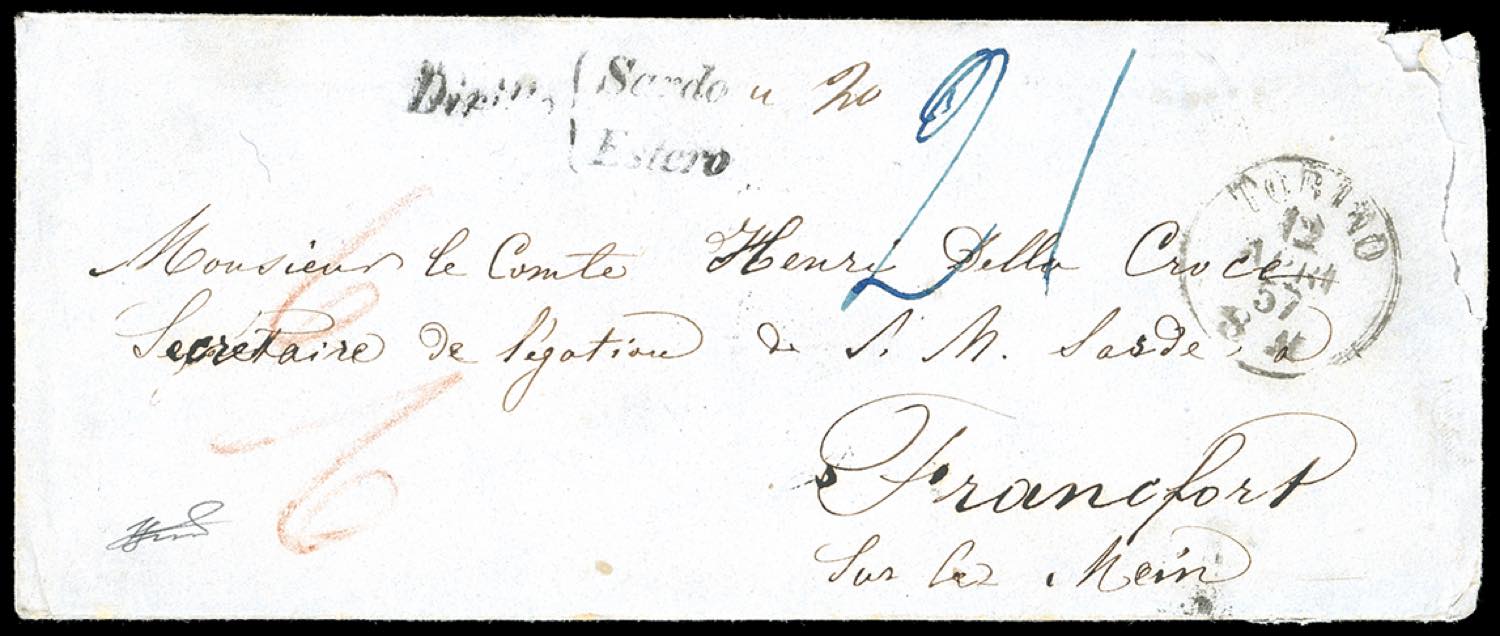 Diritto { Sardo
Estero
20
21
TORINO
12
APR
57
Monsieur le Comte Henri Della Croce
Secrétaire de légation de S. M. Sarde à
Francfort
Sur le Mein
6
6